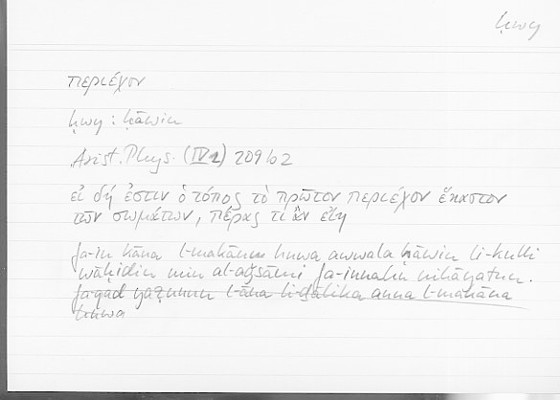 ḥwy
περιέχον
ḥwy : ḥāwin
Arist. Phys. (IV 2) 209b2
εἰ δή ἐστιν ὁ τόπος τὸ πρῶτον περιέχον ἕκαστον
τῶν σωμάτων, πέρας τι ἂν εἴη
fa-in kāna l-makānu huwa awwala ḥāwin li-kulli
wāḥidin min al-aǧsāmi fa-innahū nihāyatun.
fa-qad yaẓunnu l-āna li-ḏālika anna l-makāna
huwa